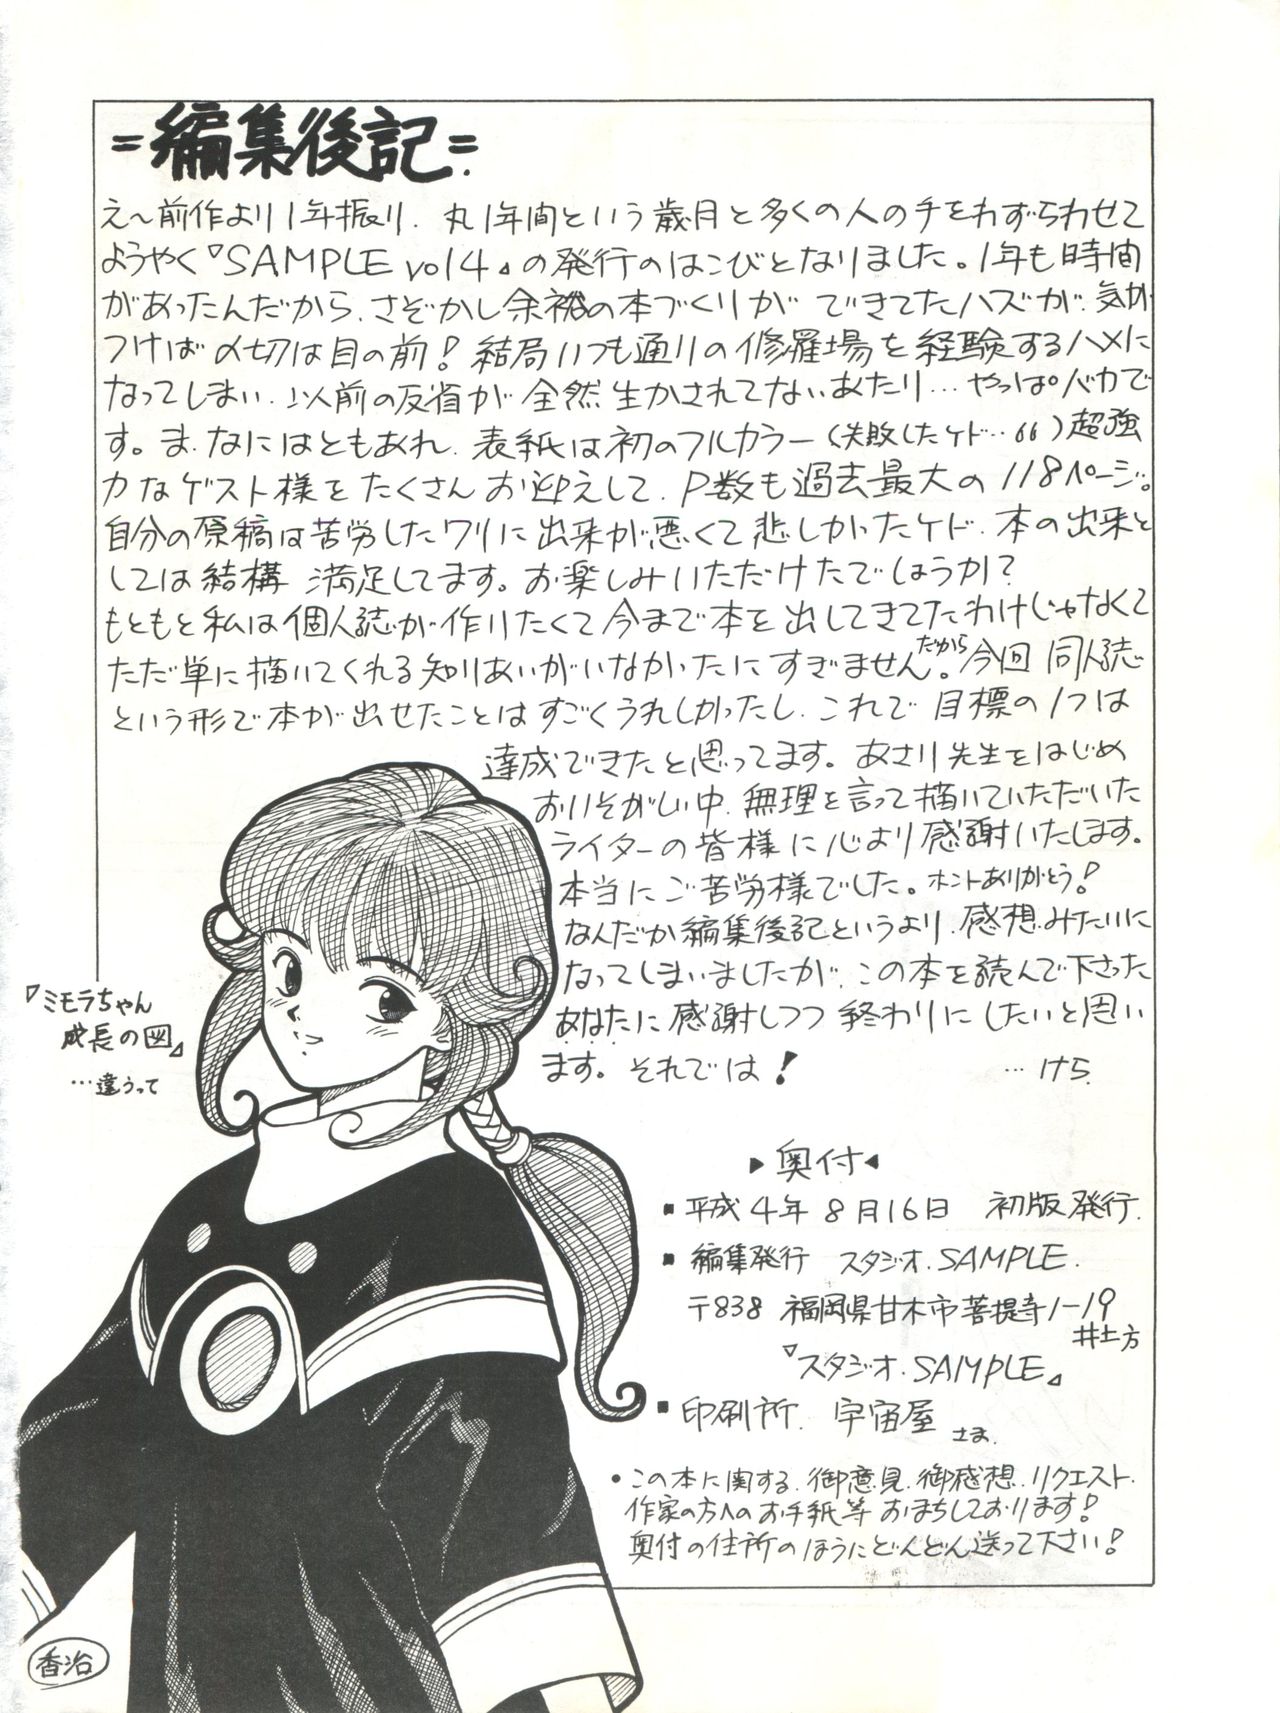 =編集後記=
え〜前作より1年振り、丸1年間という歳月と多くの人の手をわずらわせて
ようやく『SAMPLE vol4』の発行のはこびとなりました。1年も時間
があったんだから、さぞかし余裕の本づくりができてたハズが、気が
つけば〆切は目の前！結局いつも通りの修羅場を経験するハメに
なってしまい、以前の反省が全然生かされてないあたり…やっぱバカで
す。ま、なにはともあれ、表紙は初のフルカラー（失敗したケド…66）超強
力なゲスト様をたくさんお迎えして、P数も過去最大の118ページ。
自分の原稿は苦労したワリに出来が悪くて悲しかったケド、本の出来と
しては結構満足してます。お楽しみいただけたでしょうか？
もともと私は個人誌が作りたくて今まで本を出してきてたわけじゃなくて
ただ単に描いてくれる知りあいがいなかったにすぎません。だから今回同人誌
という形で本が出せたことはすごくうれしかったし、これで目標の1つは
達成できたと思ってます。あさり先生をはじめ
おいそがしい中、無理を言って描いていただいた
ライターの皆様に心より感謝いたします。
本当にご苦労様でした。ホントありがとう！
なんだか編集後記というより、感想みたいに
なってしまいましたが、この本を読んで下さった
あなたに感謝しつつ終わりにしたいと思い
ます。それでは！ …けら
『ミモラちゃん
成長の図』
…違うって
▶奥付◀
■平成4年8月16日 初版発行
■編集発行 スタジオ.SAMPLE.
〒838 福岡県甘木市菩提寺1-19
井土方
『スタジオ.SAMPLE』
■印刷所 宇宙屋さま
•この本に関する、御意見、御感想、リクエスト、
作家の方へのお手紙等おまちしております！
奥付の住所のほうにどんどん送って下さい！
香治